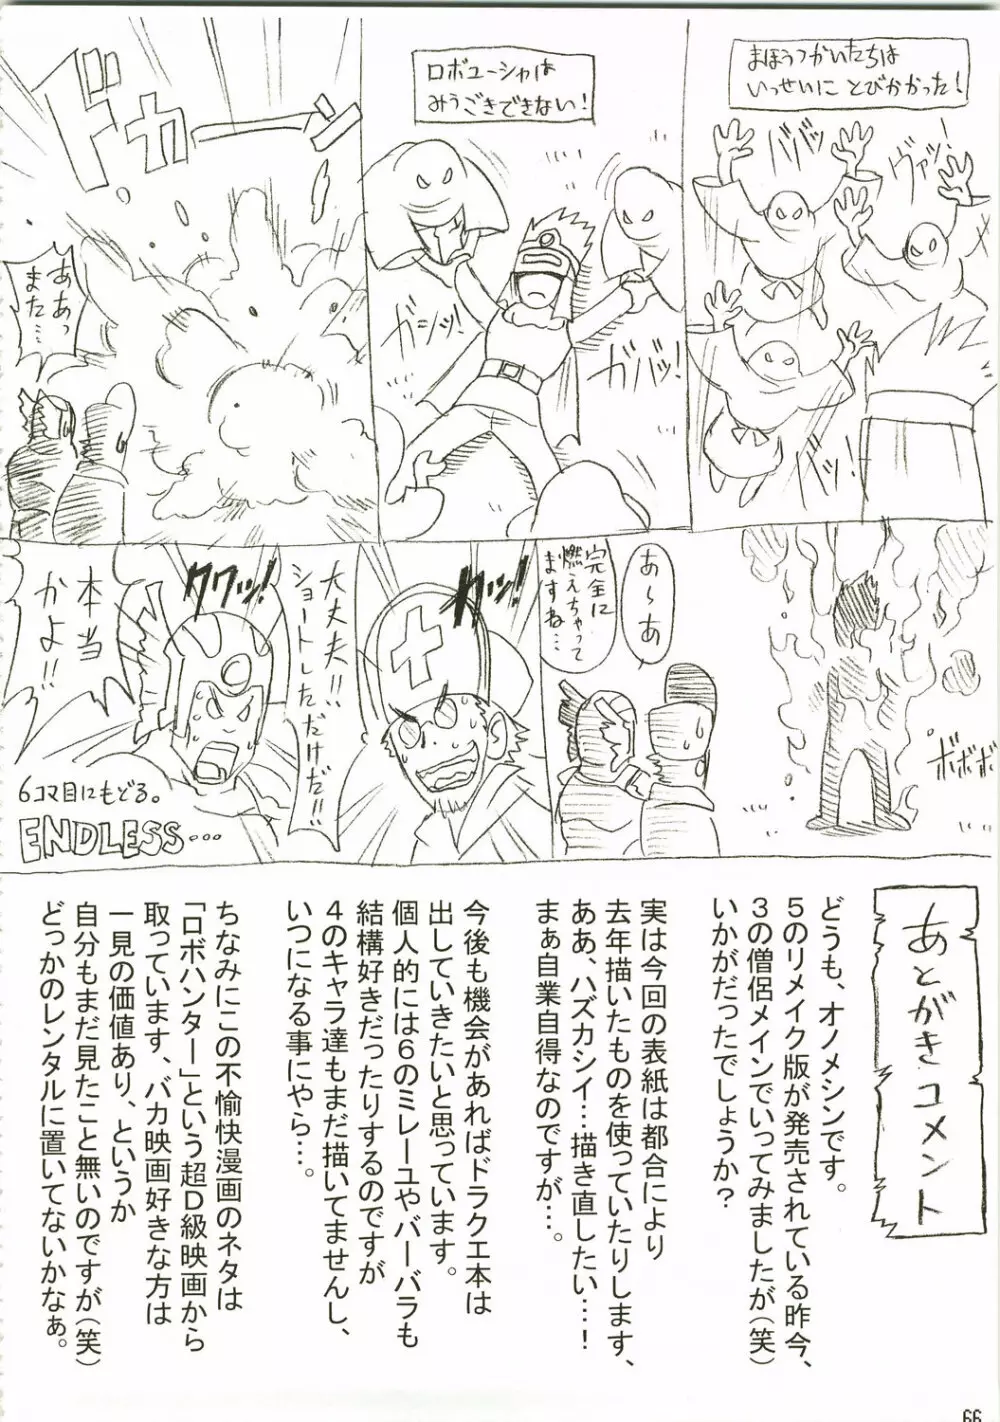 まほうつかいたちは
いっせいに とびかかった!
バババッ
ヴァッ!
バッ!
ロボユーシャは
みうごきできない!
ガシッ!
ガバッ!
ドカーーン
ああっ
また…
ボボボ
あ〜あ
完全に
燃えちゃって
ますね…
クワッ!
大丈夫!!
ショートしただけだ!!
クワッ!
本当
かよ!!
6コマ目にもどる。
ENDLESS…
あとがきコメント
どうも、オノメシンです。
5のリメイク版が発売されている昨今、
3の僧侶メインでいってみましたが(笑)
いかがだったでしょうか?
実は今回の表紙は都合により
去年描いたものを使っていたりします、
ああ、ハズカシイ…描き直したい……!
まぁ自業自得なのですが…。
今後も機会があればドラクエ本は
出していきたいと思っています。
個人的には6のミレーユやバーバラも
結構好きだったりするのですが
4のキャラ達もまだ描いてませんし、
いつになる事にやら…。
ちなみにこの不愉快漫画のネタは
「ロボハンター」という超D級映画から
取っています、バカ映画好きな方は
一見の価値あり、というか
自分もまだ見たこと無いのですが(笑)
どっかのレンタルに置いてないかなぁ。
66